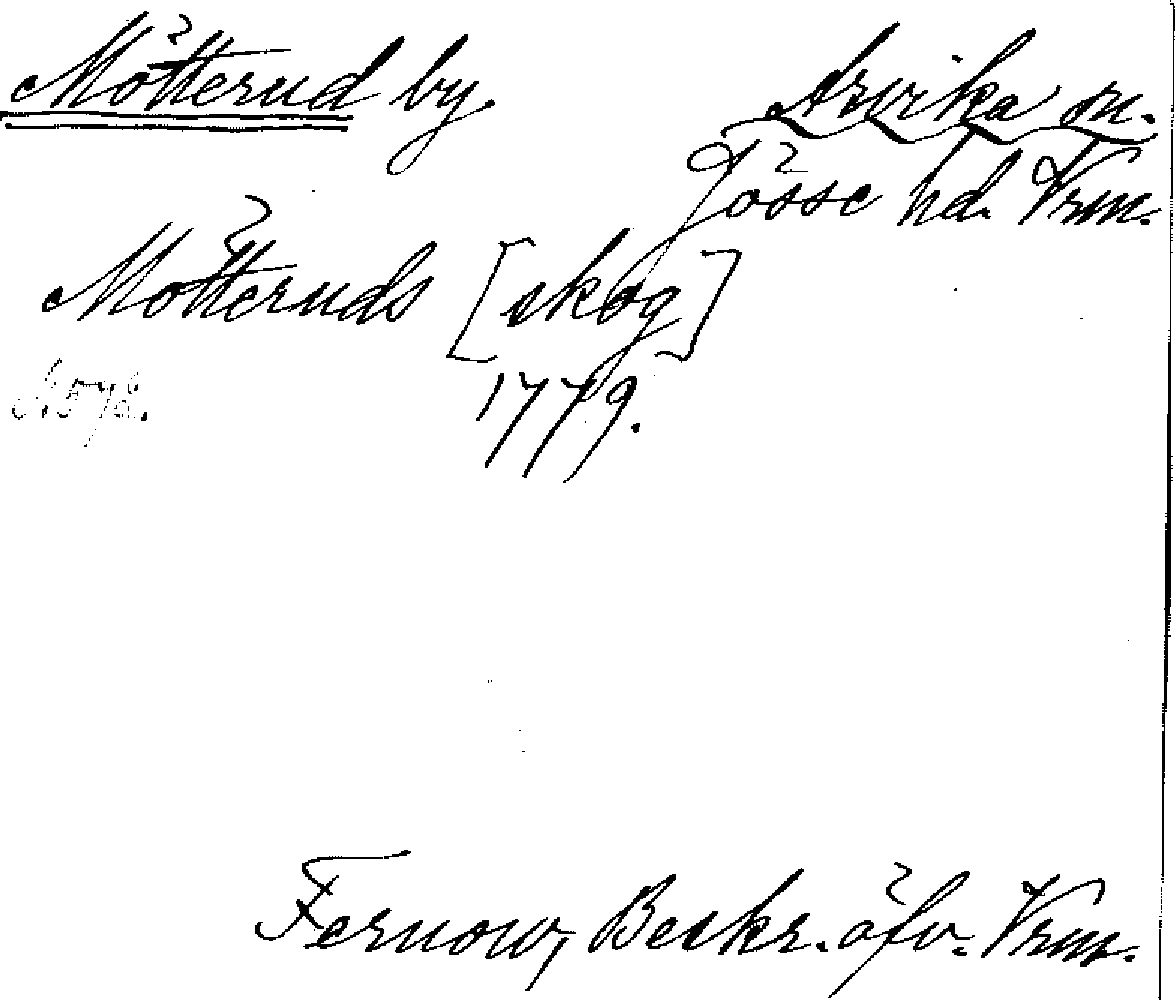 Mötterud by.
Arvika sn.
Jösse hd. Vrm.
Mötteruds [skog]
1779.
Fernow, Beskr. öfv. Vrm.